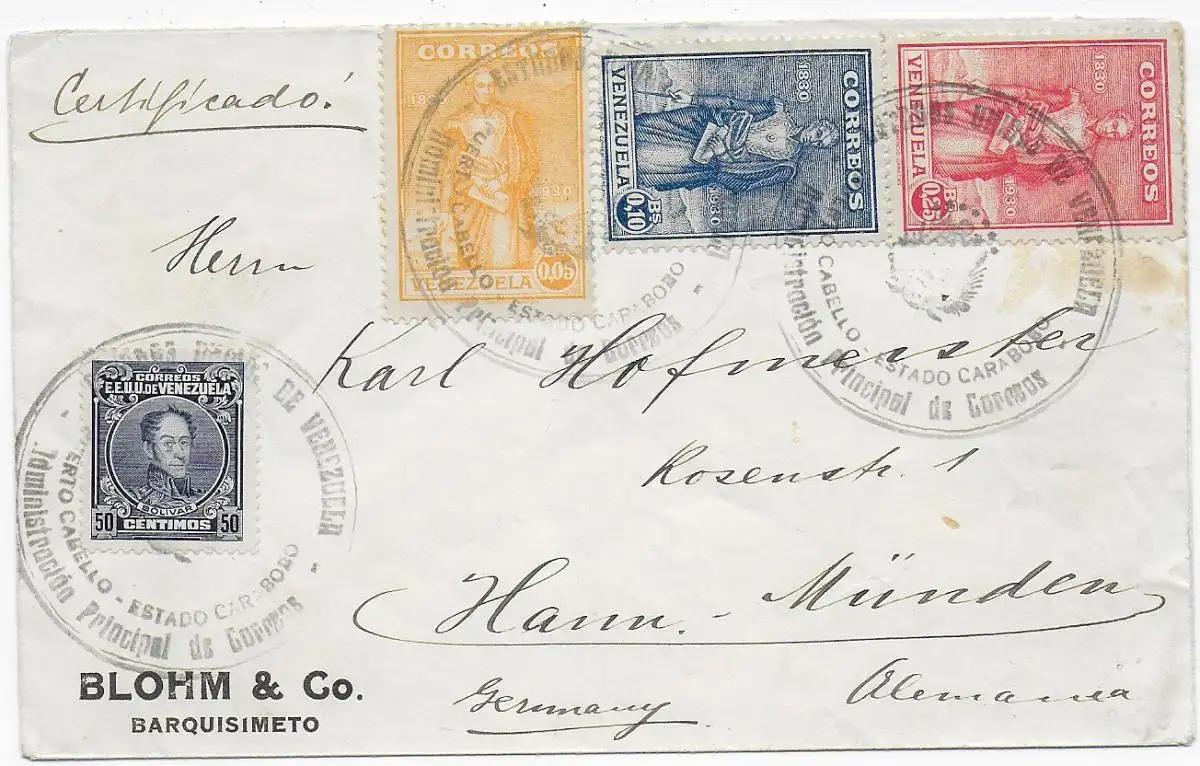 Certificado.
CORREOS
1830 1930
VENEZUELA 0.05
CORREOS
1830 1930
VENEZUELA
BS 0,10
CORREOS
1830 1930
VENEZUELA
BS 0,25
PUERTO CABELLO - ESTADO CARABOBO -
Administración Principal de Correos
DE VENEZUELA
CABELLO - ESTADO CARABOBO
Administración Principal de Correos
Herrn
Karl Hofmeister
Rosenstr. 1
Hann. - Münden
Germany Alemania
CORREOS
E.E.U.U. DE VENEZUELA
BOLIVAR
50 CENTIMOS 50
DE VENEZUELA -
PUERTO CABELLO - ESTADO CARABOBO
Administración Principal de Correos
BLOHM & Co.
BARQUISIMETO